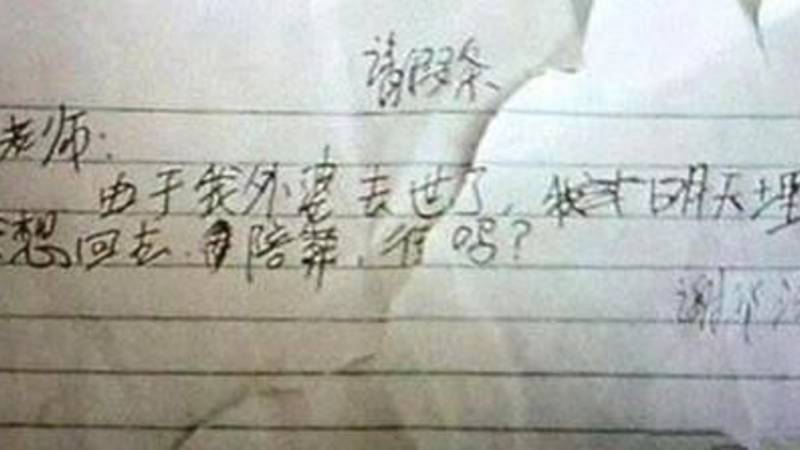 请假条
老师:
由于我外婆去世了, 明天埋
想回去陪葬,行吗?
谢